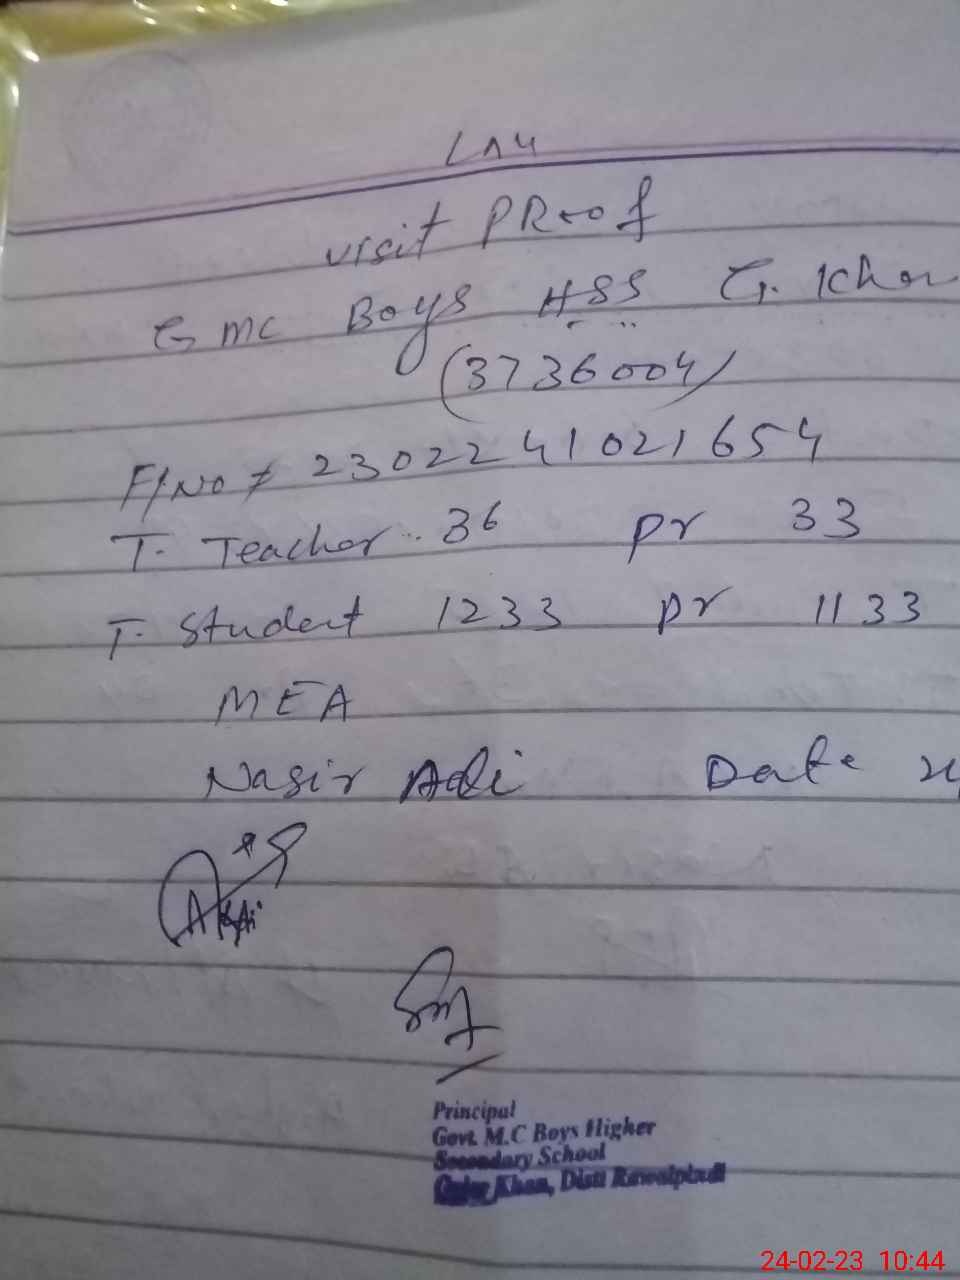 LAW
visit PRoof
G MC Boys HSS G. Khan
(3736004)
F/No # 2302241021654
T. Teacher .. 36 pr 33
T. Student 1233 pr 1133
MEA
Nasir Date
Principal
Govt. M.C Boys Higher
Secondary School
Khan, Distt Rawalpindi
24-02-23 10:44